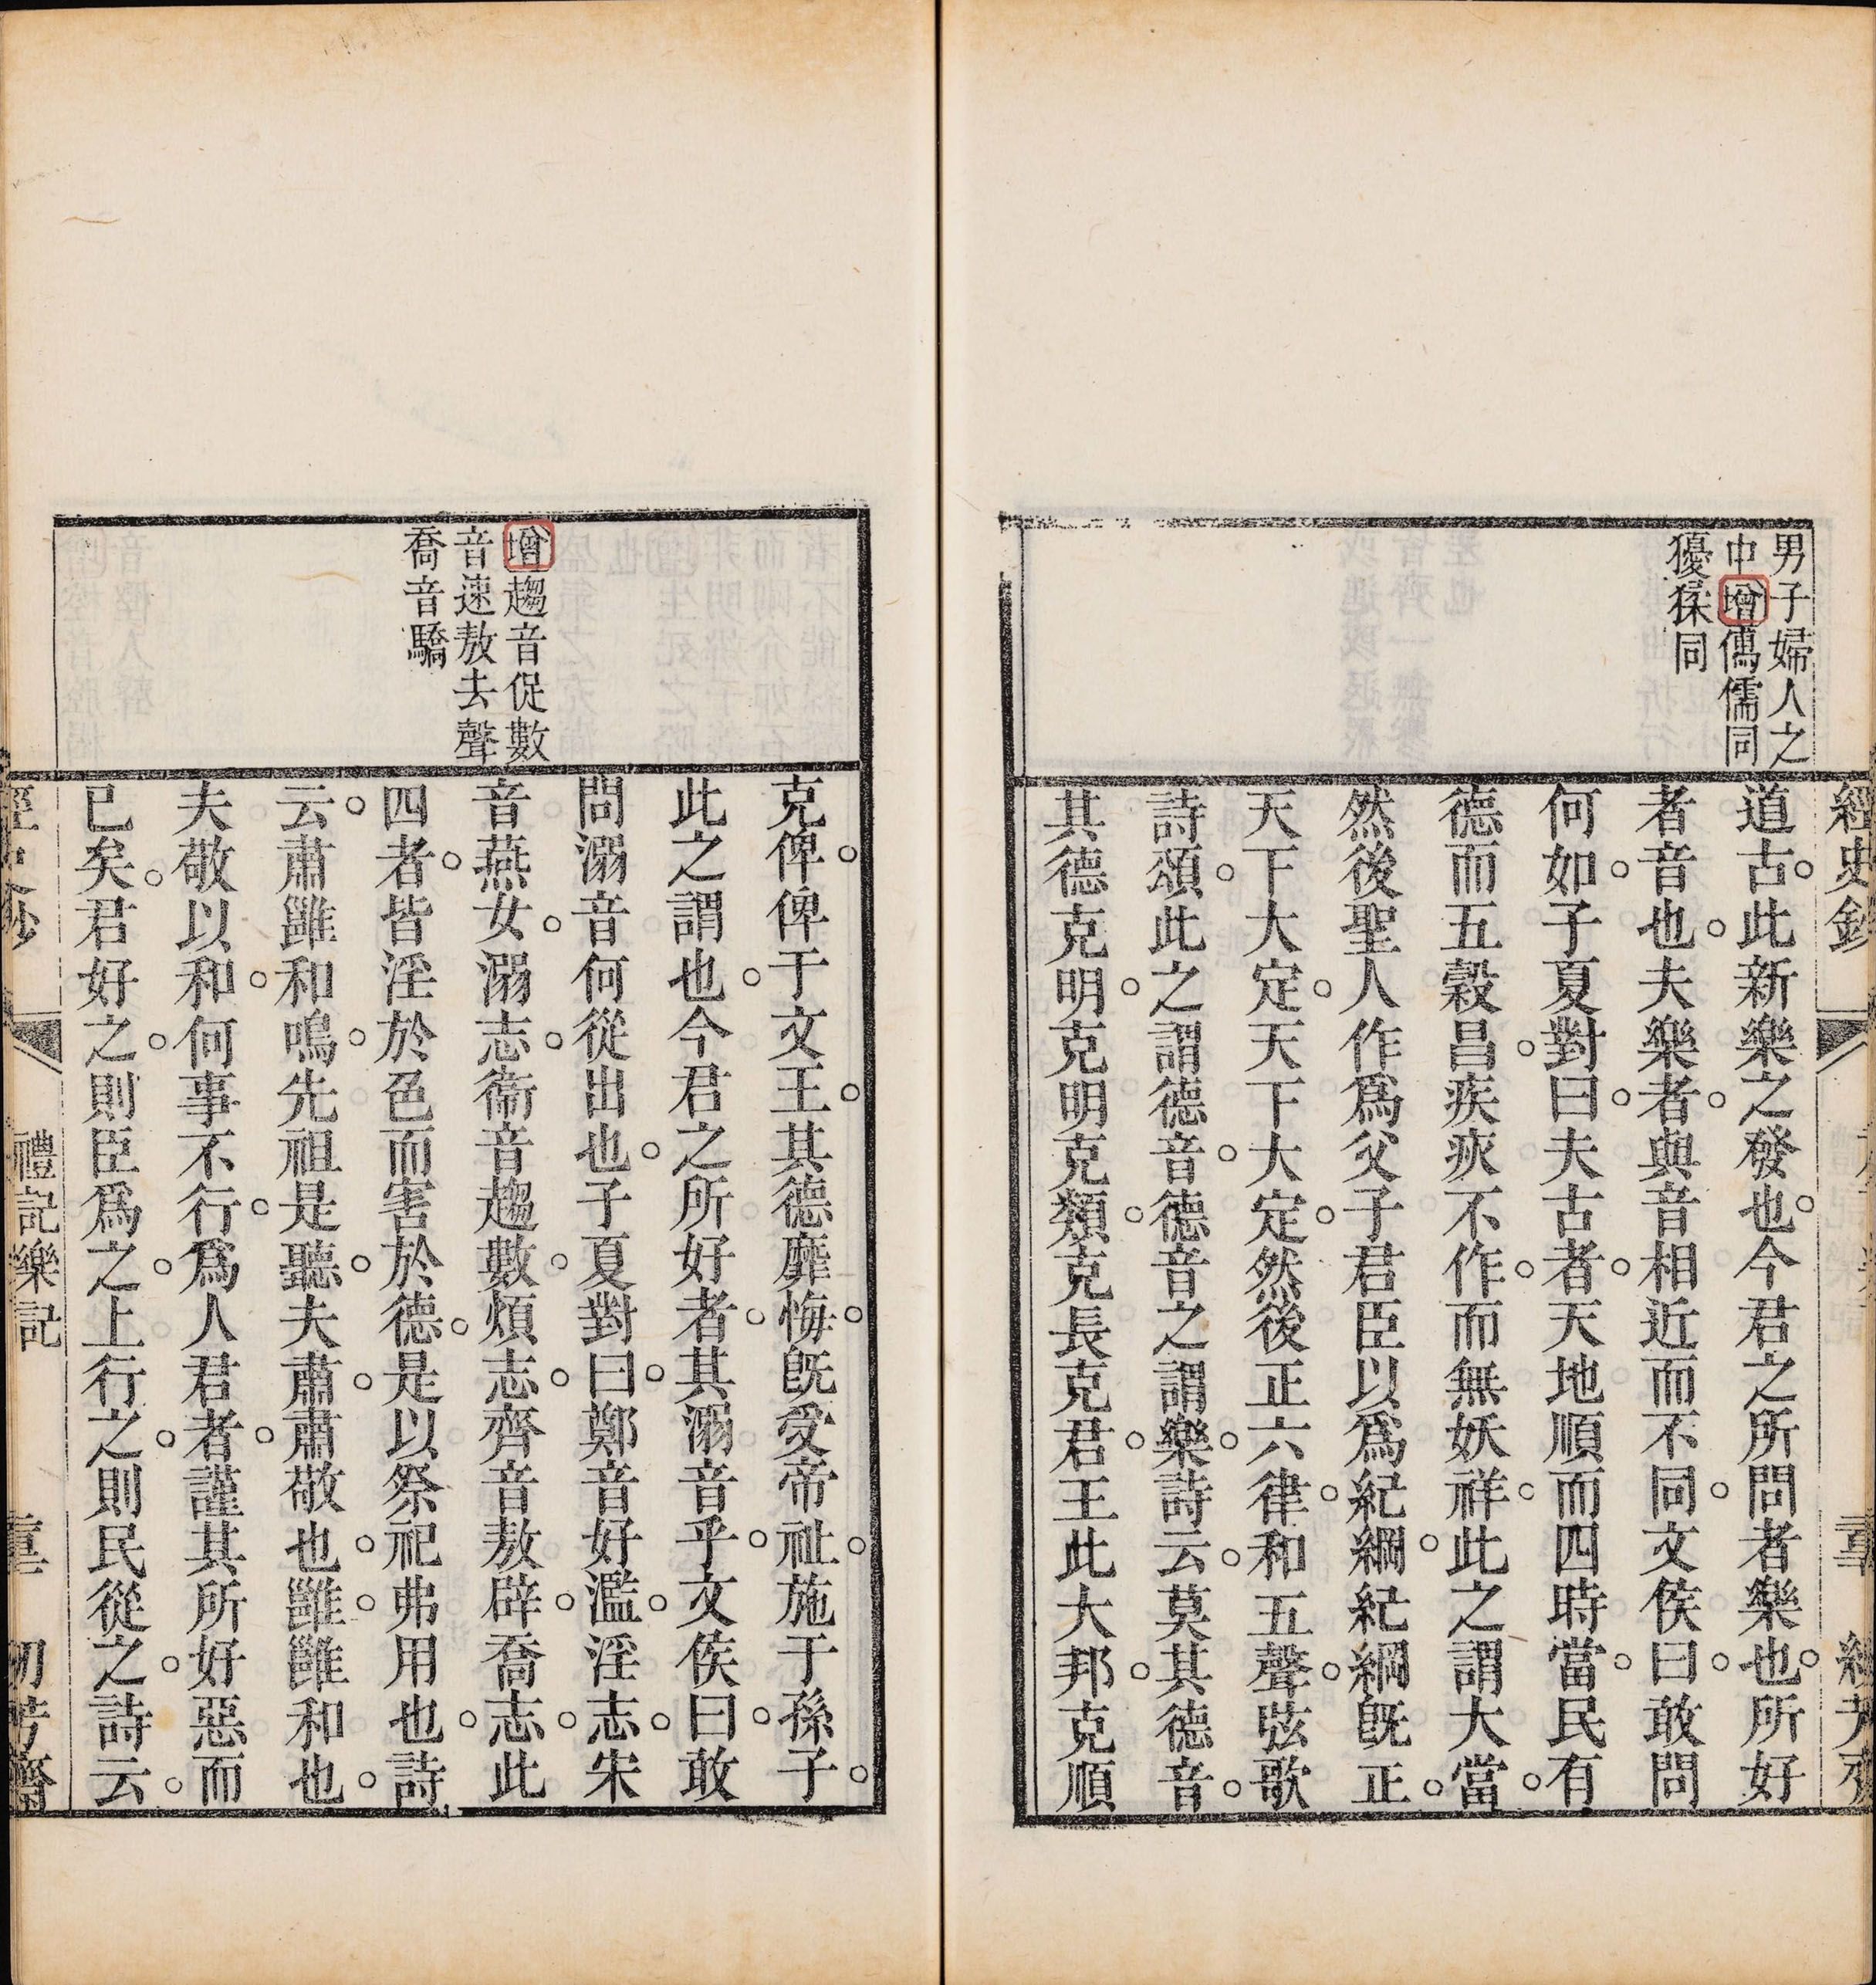 經史鈔
男子婦人之
中增儰儒同
獶猱同
道古。此新樂之發也。今君之所問者樂也。所好
者音也。夫樂者。與音相近而不同。文侯曰。敢問
何如。子夏對曰。夫古者。天地順而四時當。民有
德而五穀昌。疾疢不作。而無妖祥。此之謂大當。
然後聖人作爲父子君臣以爲紀綱。紀綱旣正。
天下大定。天下大定。然後正六律。和五聲。弦歌
詩頌。此之謂德音。德音之謂樂。詩云。莫其德音。
其德克明。克明克類。克長克君。王此大邦。克順
增趨音促數
音速敖去聲
喬音驕
克俾。俾于文王。其德靡悔。旣受帝祉。施于孫子。
此之謂也。今君之所好者。其溺音乎。文侯曰。敢
問溺音何從出也。子夏對曰。鄭音好濫。淫志。宋
音燕女。溺志。衞音趨數。煩志。齊音敖辟。喬志。此
四者。皆淫於色而害於德。是以祭祀弗用也。詩
云。肅雝和鳴。先祖是聽。夫肅。肅敬也。雝。雝和也。
夫敬以和。何事不行。爲人君者。謹其所好惡而
已矣。君好之。則臣爲之。上行之。則民從之。詩云。
禮記樂記